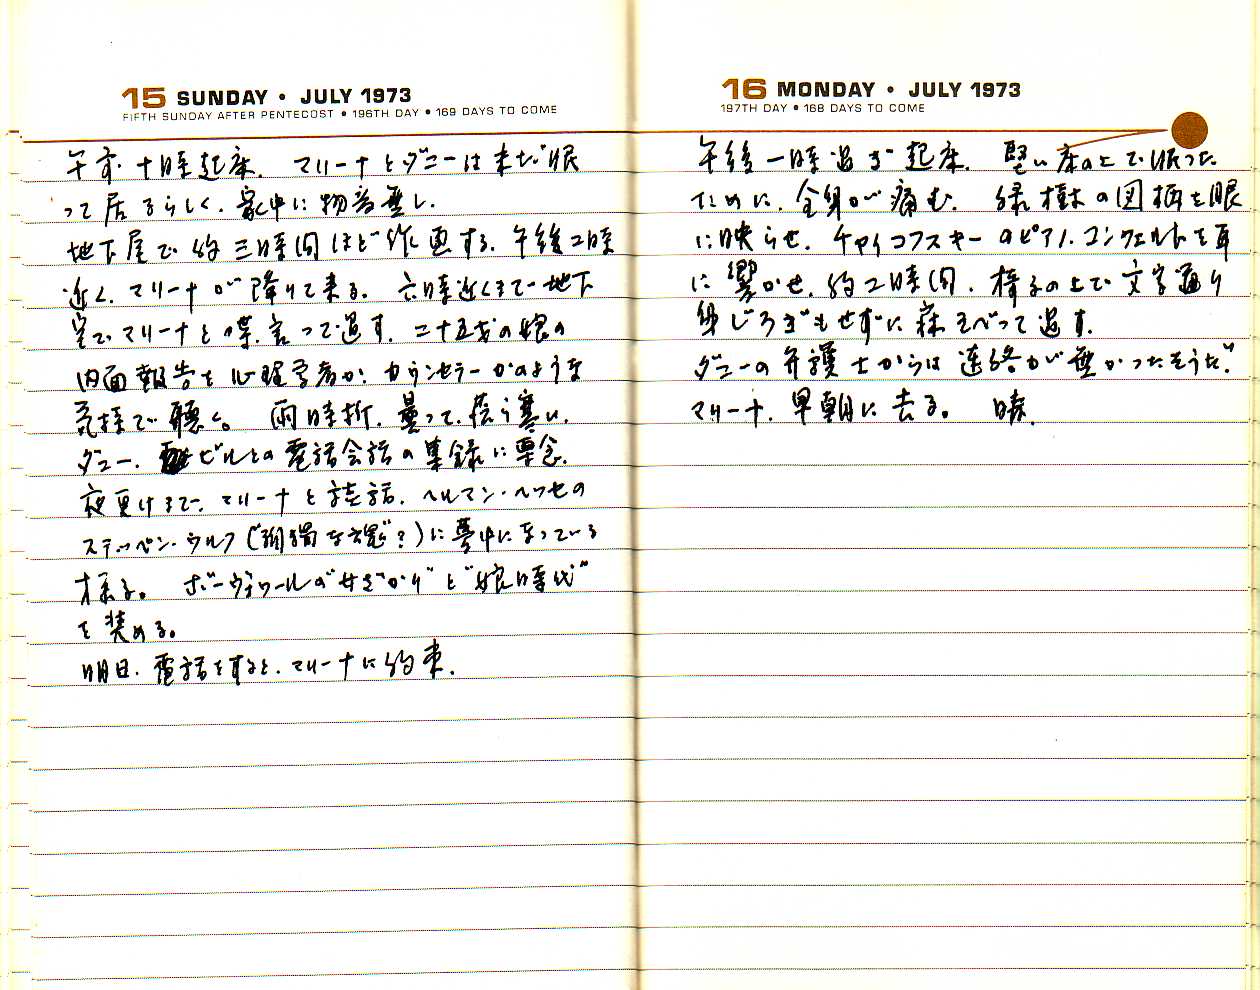 15 SUNDAY • JULY 1973
FIFTH SUNDAY AFTER PENTECOST • 196TH DAY • 169 DAYS TO COME
午前十時起床. マリーナとダニーは未だ眠
って居るらしく、家中に物音無し.
地下屋で約三時間ほど作画する. 午後二時
近く、マリーナが降りて来る。六時近くまで地下
室で、マリーナと喋言って過す. 二十五才の娘の
内面報告を心理学者か、カウンセラーかのような
気持で聴く。雨時折、曇って、薄ら寒い.
ダニー、ビルとの電話会話の集録に専念.
夜更けまで、マリーナと談話. ヘルマン・ヘッセの
ステッペン・ウルフ(“孤独な魂”?)に夢中になっている
様子。ボーヴォワールの“女ざかり”と“娘時代”
を奨める。
明日、電話をすると、マリーナに約束.
16 MONDAY • JULY 1973
197TH DAY • 168 DAYS TO COME
午後一時過ぎ起床. 堅い床の上で眠った
ために、全身が痛む. 緑樹の図柄を眼
に映らせ、チャイコフスキーのピアノ・コンツェルトを耳
に響かせ、約二時間、椅子の上で文字通り
身じろぎもせずに寝そべって過す.
ダニーの弁護士からは連絡が無かったそうだ.
マリーナ、早朝に去る。晴.